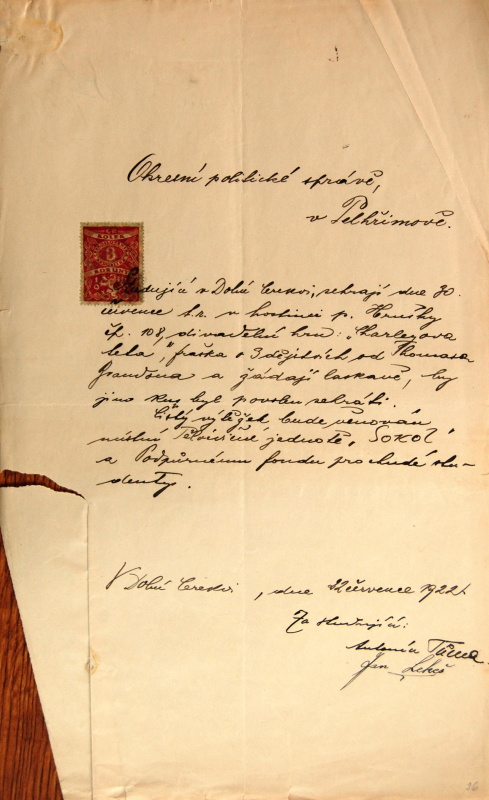 Okresní politické správě,
v Pelhřimově.
KOLEK
3
KORUN
Studující v Dolní Cerekvi, sehrají dne 30.
července t.r. v hostinci p. Hrušky
čp. 108, divadelní hru: „Charleyova
teta", fraška o 3 dějstvích od Thomasa
Brandona a žádají laskavě, by
jim kus byl povolen sehráti.
Čistý výtěžek bude věnován
místní Tělocvičné jednotě „SOKOL"
a Podpůrnému fondu pro chudé stu-
denty.
V Dolní Cerekvi, dne 22 července 1922.
Za studující:
Antonín Tůma
Jan
26